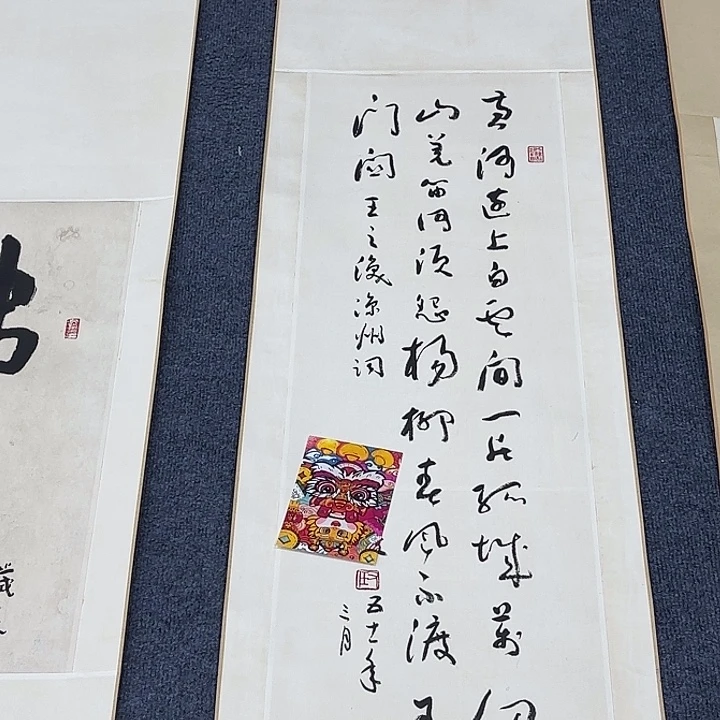 黄河远上白云间一片孤城万仞
山羌笛何须怨杨柳春风不渡玉
门关王之涣凉州词
五十一年
三月